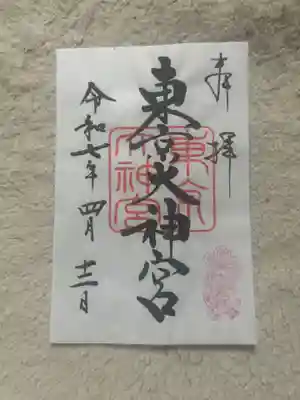 奉拝
東京大神宮
東京
大神宮
令和七年四月十二日